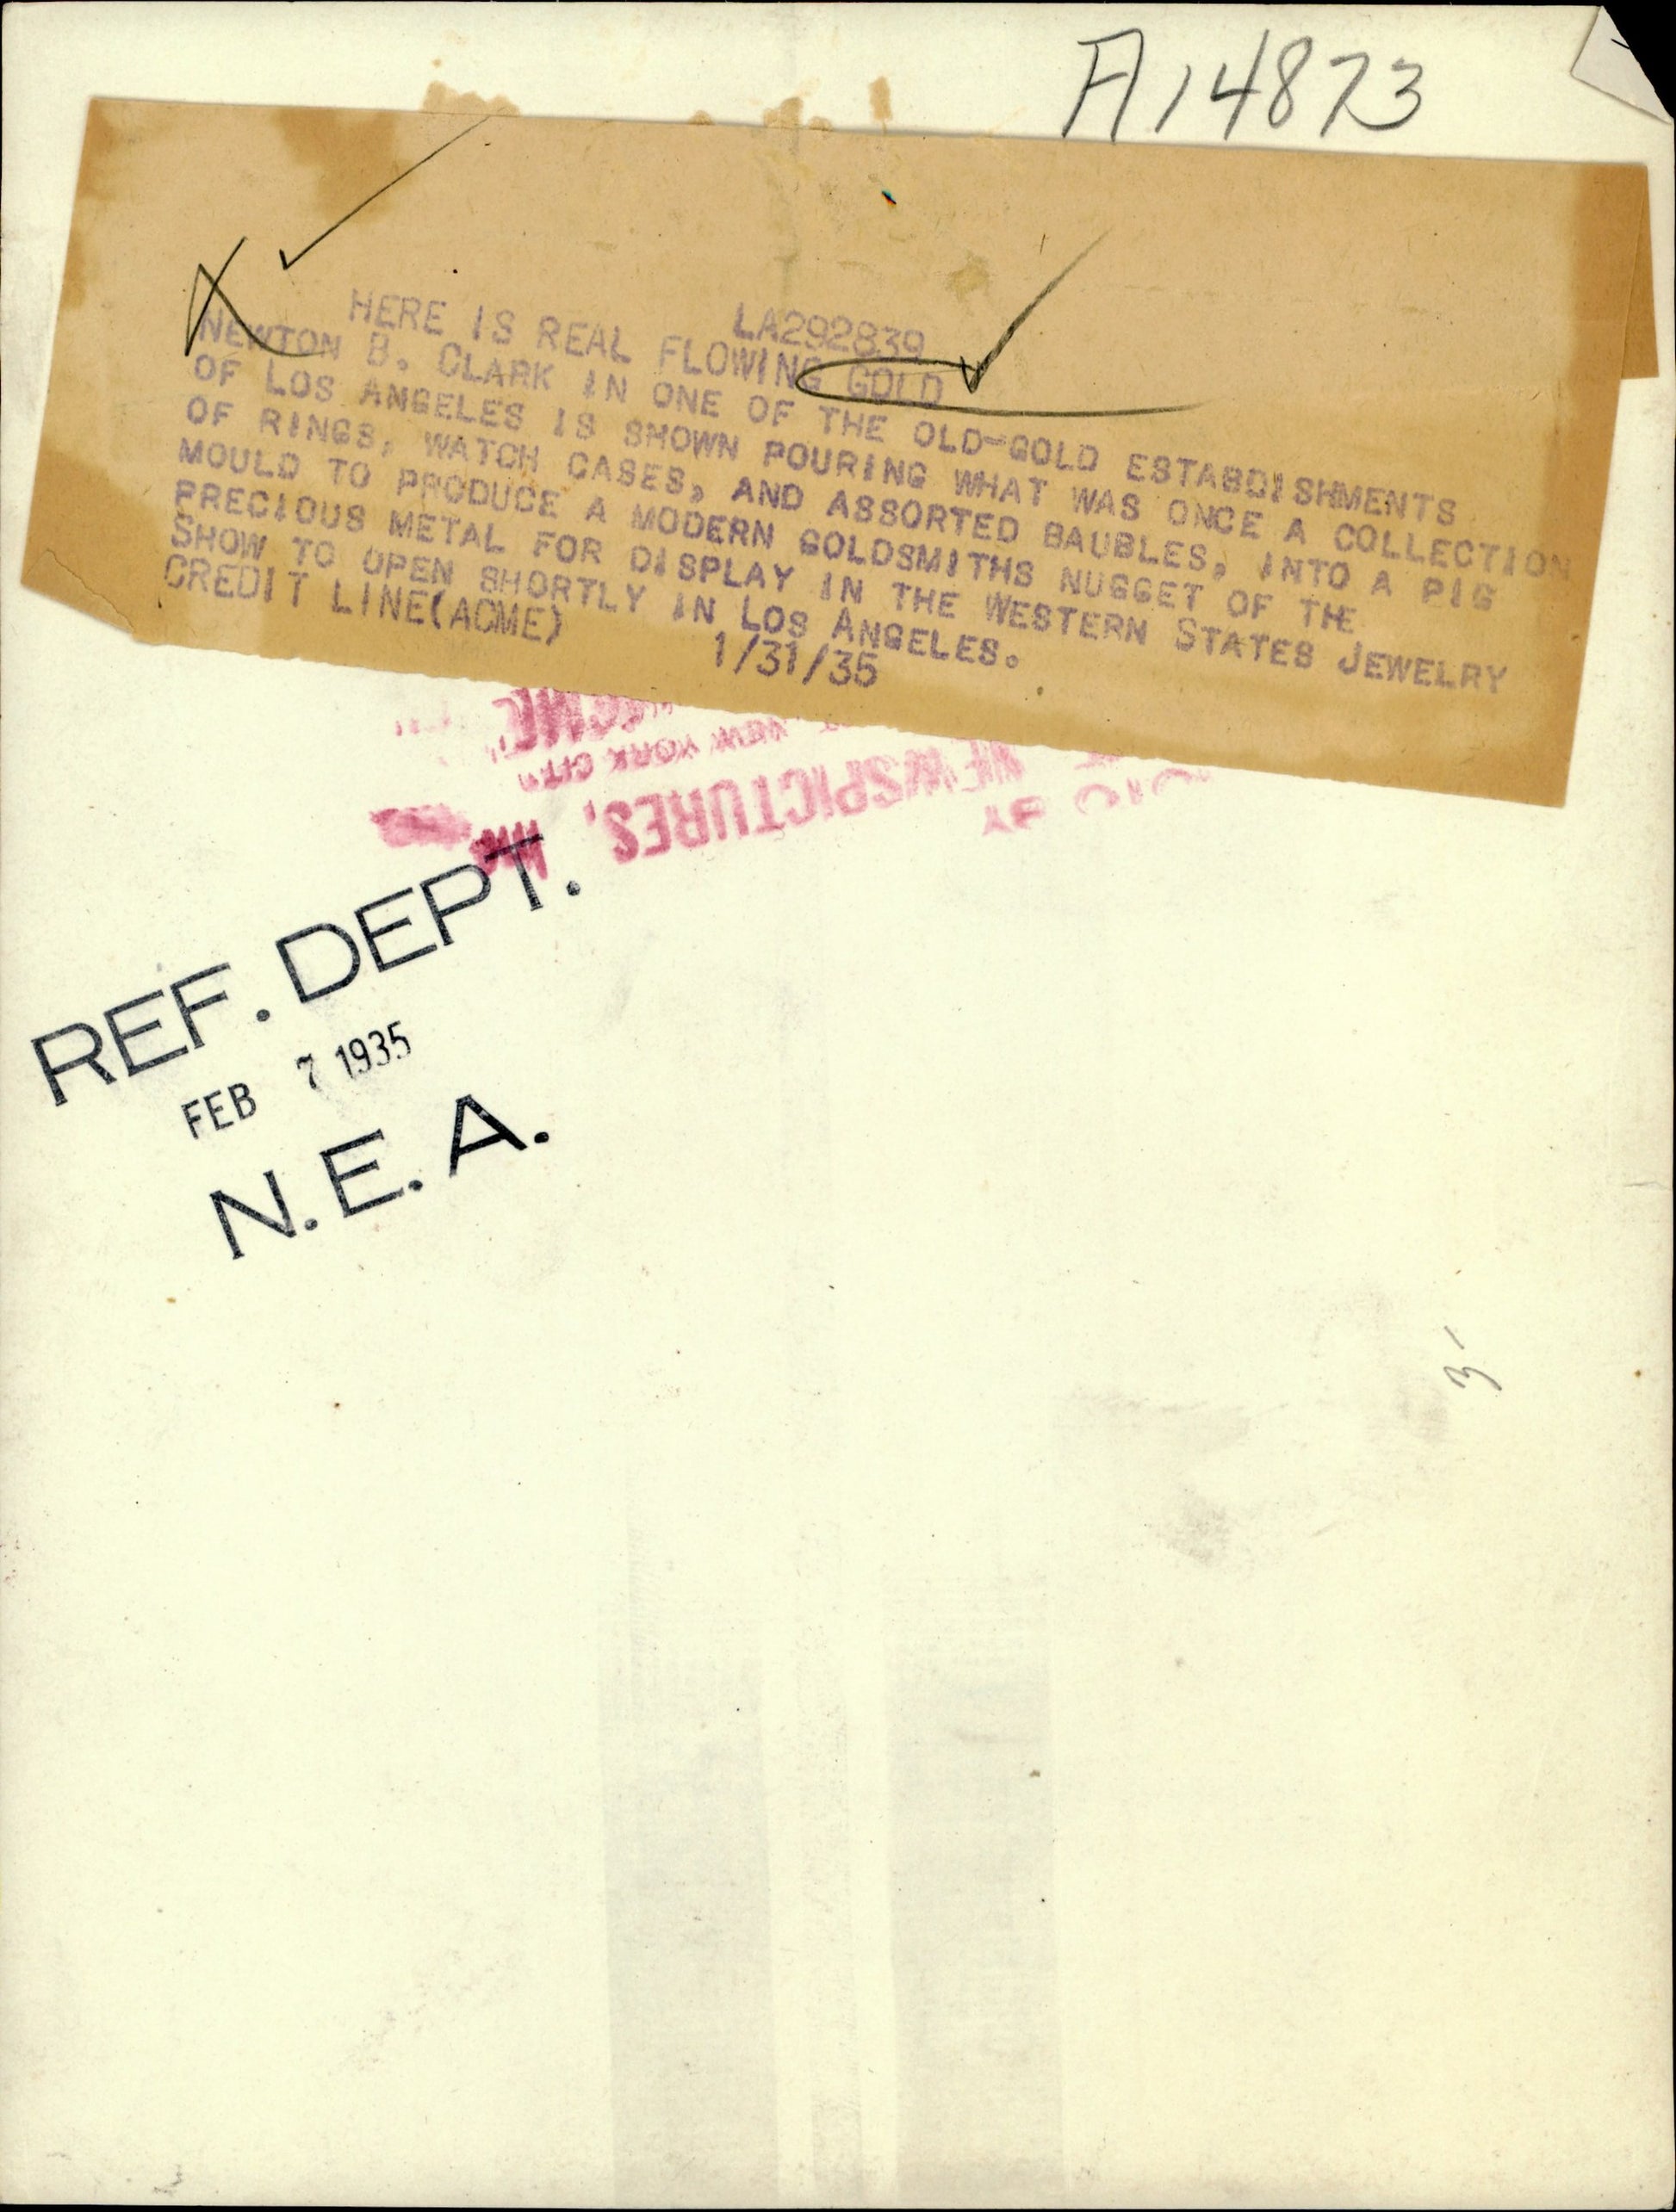 A14873
LA292839
HERE IS REAL FLOWING GOLD
NEWTON B. CLARK IN ONE OF THE OLD-GOLD ESTABDISHMENTS
OF LOS ANGELES IS SHOWN POURING WHAT WAS ONCE A COLLECTION
OF RINGS, WATCH CASES, AND ASSORTED BAUBLES, INTO A PIG
MOULD TO PRODUCE A MODERN GOLDSMITHS NUGGET OF THE
PRECIOUS METAL FOR DISPLAY IN THE WESTERN STATES JEWELRY
SHOW TO OPEN SHORTLY IN LOS ANGELES.
CREDIT LINE(ACME) 1/31/35
"ACME"
NEW YORK CITY
NEWSPICTURES,
BY
REF. DEPT.
FEB 7 1935
N.E.A.